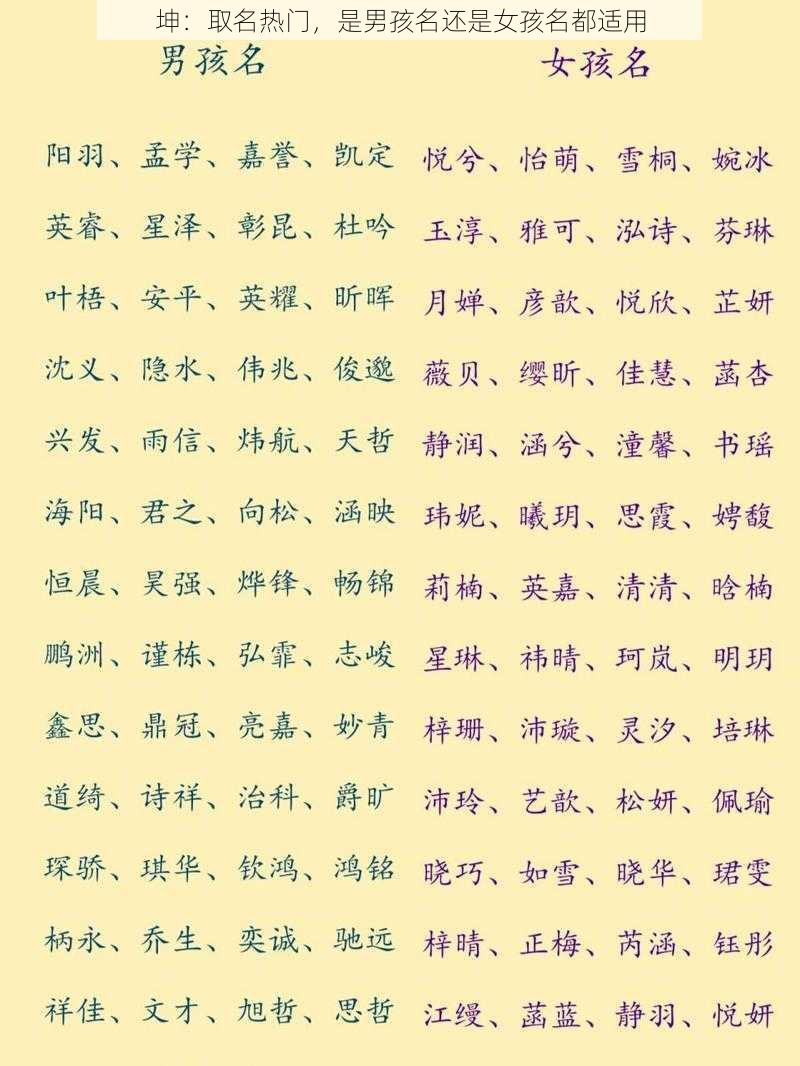 坤：取名热门，是男孩名还是女孩名都适用
男孩名
阳羽、孟学、嘉誉、凯定
英睿、星泽、彰昆、杜吟
叶梧、安平、英耀、昕晖
沈义、隐水、伟兆、俊邈
兴发、雨信、炜航、天哲
海阳、君之、向松、涵映
恒晨、昊强、烨锋、畅锦
鹏洲、谨栋、弘霏、志峻
鑫思、鼎冠、亮嘉、妙青
道绮、诗祥、治科、爵旷
琛骄、琪华、钦鸿、鸿铭
柄永、乔生、奕诚、驰远
祥佳、文才、旭哲、思哲
女孩名
悦兮、怡萌、雪桐、婉冰
玉淳、雅可、泓诗、芬琳
月婵、彦歆、悦欣、芷妍
薇贝、缨昕、佳慧、菡杏
静润、涵兮、潼馨、书瑶
玮妮、曦玥、思霞、娉馥
莉楠、英嘉、清清、晗楠
星琳、祎晴、珂岚、明玥
梓珊、沛璇、灵汐、培琳
沛玲、艺歆、松妍、佩瑜
晓巧、如雪、晓华、珺雯
梓晴、正梅、芮涵、钰彤
江缦、菡蓝、静羽、悦妍